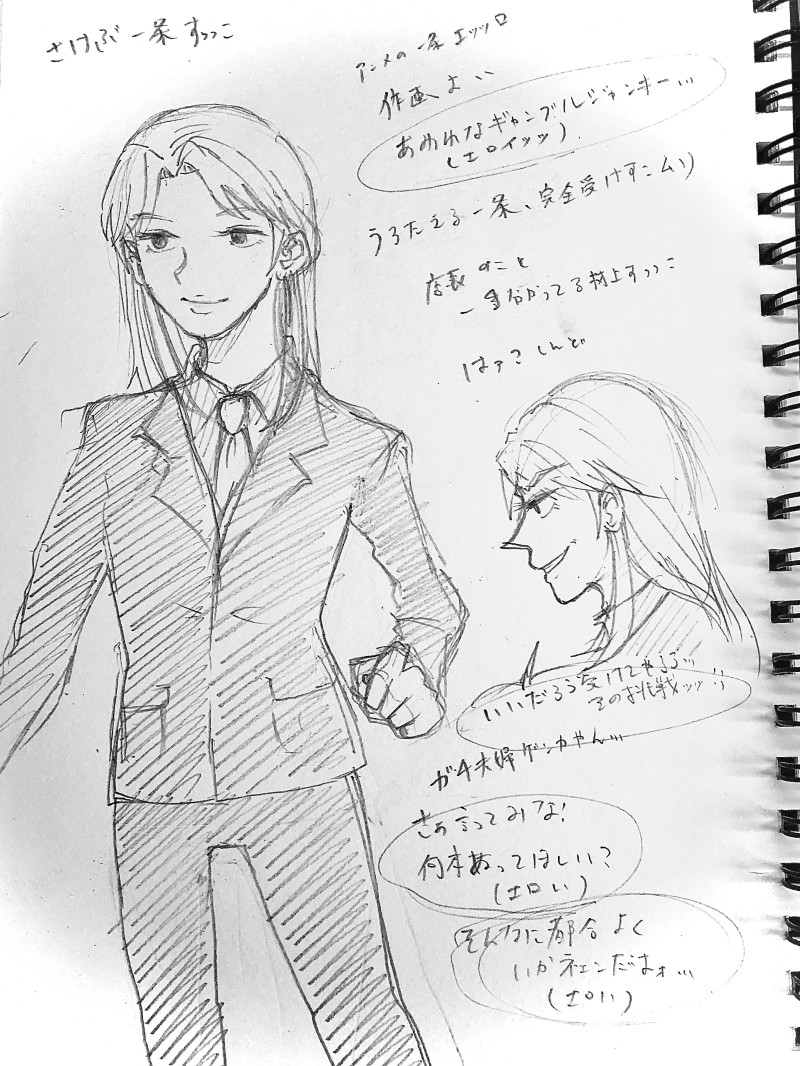 さけぶ一条すっっこ
アニメの一条エッッロ
作画よい
あわれなギャンブルジャンキー…
(エロイッッ)
うろたえる一条、完全受けすこ(ムリ)
店長のこと
一番分かってる村上すっっこ
はァ?しんど
いいだろう受けてやる…
そのお挑戦ッッッ…
ガチ夫婦ゲンカやん…
さあ言ってみな!
何本ぬってほしい?
(エロい)
そんなに都合よく
いかネェンだよォ…
(エロい)